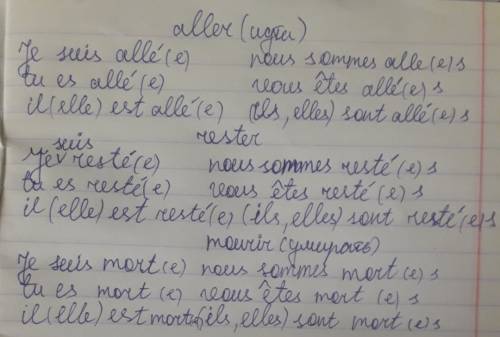 aller (идти)
Je suis allé(e) nous sommes alle(e)s
tu es allé(e) vous êtes allé(e)s
il(elle) est allé(e) (ils, elles) sont allé(e)s
rester
Je suis resté(e) nous sommes resté(e)s
tu es resté(e) vous êtes resté(e)s
il (elle) est resté(e) (ils, elles) sont resté(e)s
mourir (умирать)
Je suis mort(e) nous sommes mort(e)s
tu es mort (e) vous êtes mort (e)s
il(elle) est mort(e) (ils, elles) sont mort(e)s